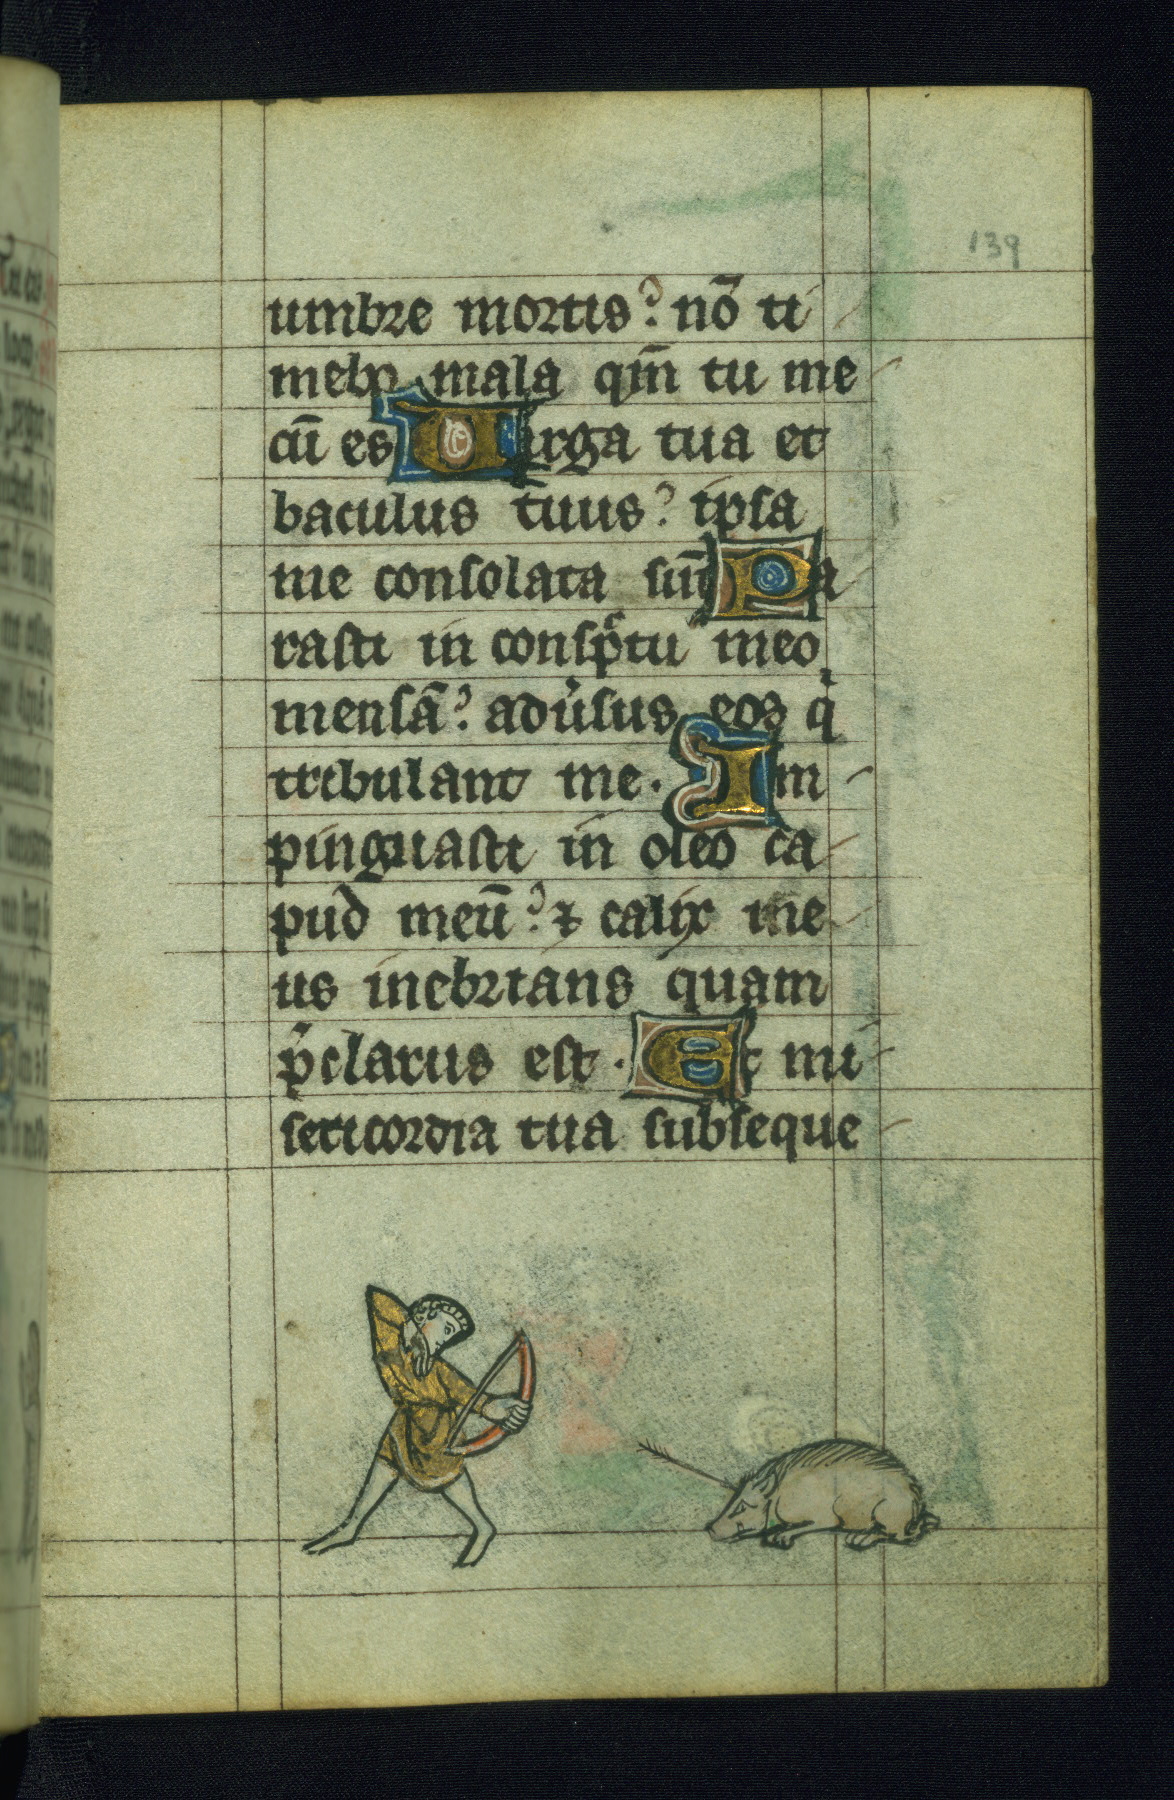 139
umbre mortis? nō ti
mebo mala qm̄ tu me
cū es Uirga tua et
baculus tuus? ipsa
me consolata sūt Pa
rasti in conspctu meo
mensā? adu'sus eos q̇
tribulant me. Im
pinguasti in oleo ca
pud meū? ⁊ calix me
us inebrians quam
p̄clarus est. Et mi
sericordia tua subseque